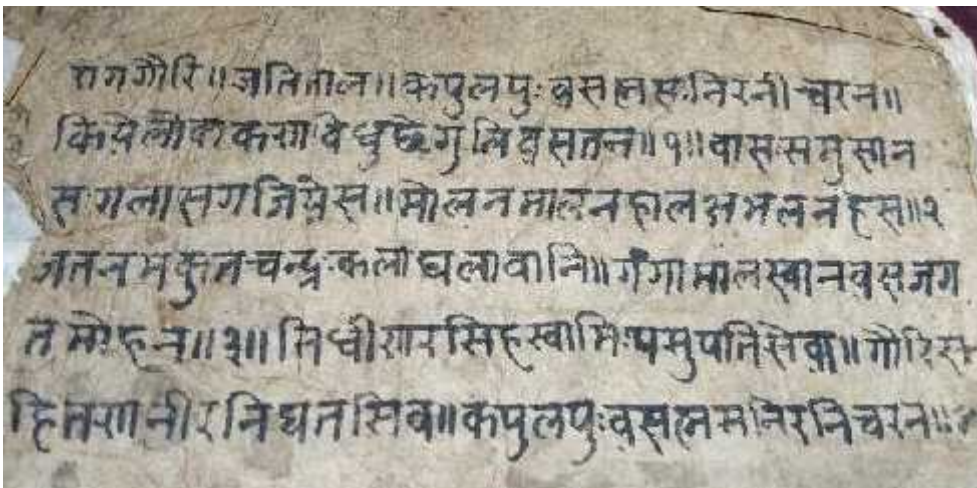 राग गौरि॥ जतिताल॥ कपुलपुःवसत्मसःनिरनी चरन॥
किपेलोवाकरुगावेधुछेगुलिवसतन॥१॥वासःसमुसान
सःगलासगजिंपेस॥मोलनमालनहालक्षमलनहस॥२
जतनमकुतचन्द्रःकलाघलावानि॥गंगामालस्वानवसजग
तमोहन॥३॥तिधीरारसिहस्वामिःपसुपतिसेवा॥गौरिस
हितरानीरनिघतसिव॥कपुलपुःवसत्मसनिरनिचरन॥